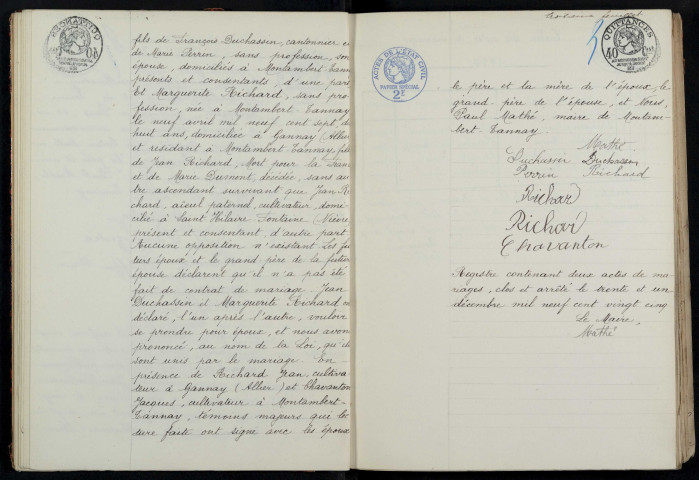 fils de François Duchassin, cantonnier et
de Marie Perrin, sans profession, son
épouse, domiciliés à Montambert-Tann
présents et consentants, d'une part
Et Marguerite Richard, sans pro
fession, née à Montambert-Tannay
le neuf avril mil neuf cent sept, di
huit ans, domiciliée à Gannay (Allier
et résidant à Montambert-Tannay, fill
de Jean Richard, Mort pour la Fran
et de Marie Dumont, décédée, sans au
tre ascendant survivant que Jean Ri
chard, aïeul paternel, cultivateur, domi
cilié à Saint Hilaire-Fontaine (Nièvre
présent et consentant, d'autre part
Aucune opposition n'existant. Les fu
turs époux et le grand père de la future
épouse déclarent qu'il n'a pas été
fait de contrat de mariage. Jean
Duchassin et Marguerite Richard on
déclaré, l'un après l'autre, vouloir
se prendre pour époux, et nous avon
prononcé, au nom de la Loi, qu'ils
sont unis par le mariage. En
présence de Richard Jean, cultiva
teur à Gannay (Allier) et Chavanton
Jacques, cultivateur à Montambert-
Tannay, témoins majeurs, qui lec
ture faite ont signé avec les époux
QUITTANCES
ACTES DE L'ÉTAT CIVIL
PAPIER SPÉCIAL
2F
le père et la mère de l'époux, le
grand-père de l'épouse, et nous,
Paul Mathé, maire de Montam-
bert-Tannay.
Mathé
Duchassin Duchassin
Perrin Richard
Richar
Richar
Chavanton
Registre contenant deux actes de ma-
riages, clos et arrêté le trente et un
décembre mil neuf cent vingt cinq
Le Maire,
Mathé